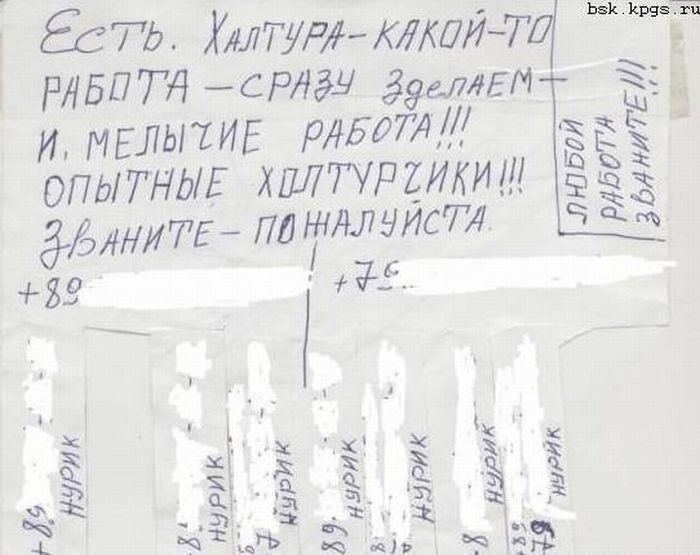 bsk.kpgs.ru
ЕСТЬ. ХАЛТУРА-КАКОЙ-ТО
РАБОТА - СРАЗУ ЗДЕЛАЕМ-
И, МЕЛЫЧИЕ РАБОТА!!!
ОПЫТНЫЕ ХОЛТУРЧИКИ!!!
ЗВАНИТЕ - ПОЖАЛУЙСТА.
ЛЮБОЙ
РАБОТА
ЗВАНИТЕ!!!
+89
+79
+89 НУРИК
8 НУРИК
89 7 НУРИК
89 НУРИК
8 7 НУРИК
8 НУРИК
+89 79 НУРИК